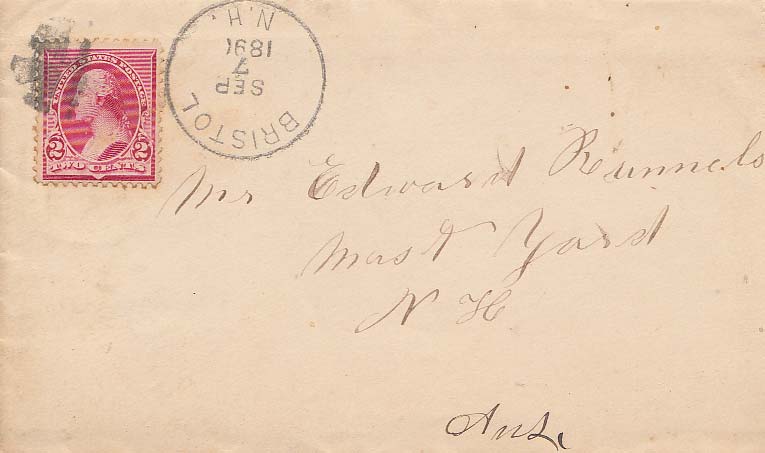 UNITED STATES POSTAGE
2 2
TWO CENTS
BRISTOL
SEP
7
189
N.H.
Mr Edward Runnels
Mast Yard
N H
Ans.